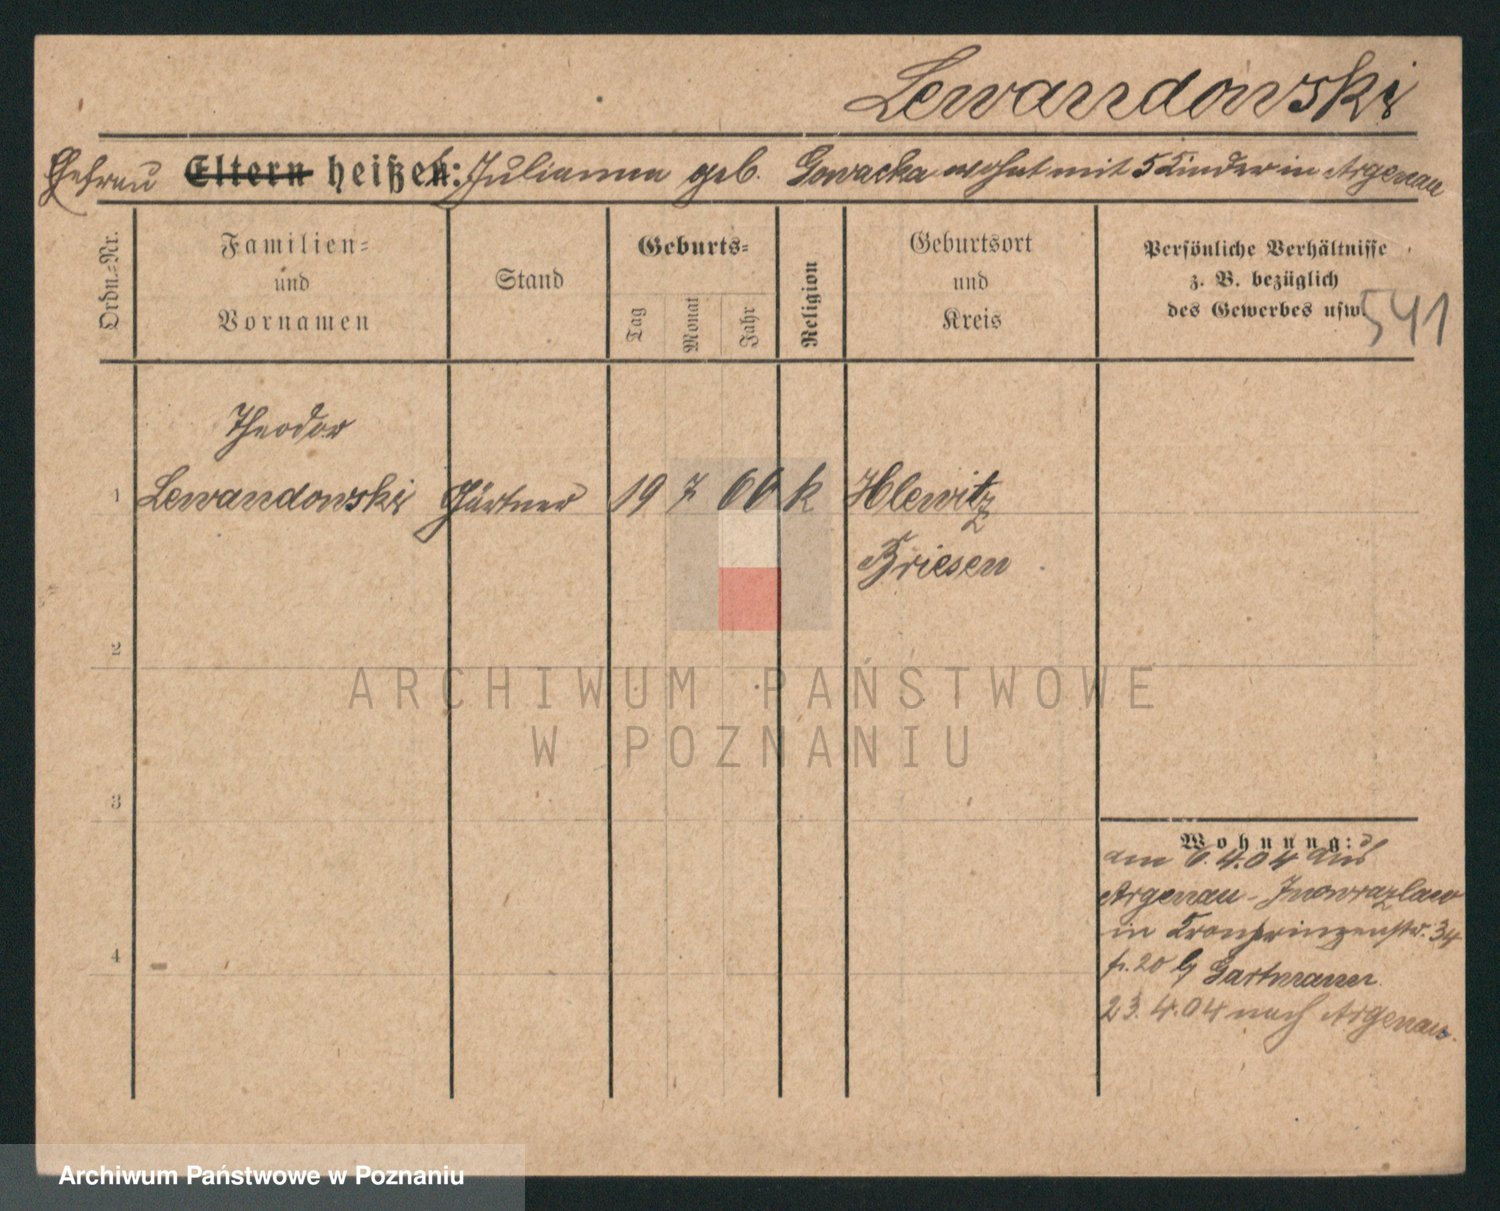 Lewandowski
Ehefrau Eltern heißen: Julianna geb. Gowacka wohnt mit 5 Kinder in Argenau
Ordn.-Nr.
Familien-
und
Vornamen
Stand
Geburts-
Tag
Monat
Jahr
Religion
Geburtsort
und
Kreis
Persönliche Verhältnisse
z. B. bezüglich
des Gewerbes usw.
541
Theodor
1 Lewandowski Gärtner 19 7 66 k Hlewitz
Briesen
2
ARCHIWUM PAŃSTWOWE
W POZNANIU
3
Wohnung:
am 6.4.04 aus
Argenau - Inowrazlaw
in Kronprinzenstr. 34
p. 20 b/ Gartmann
4
23.4.04 nach Argenau.
Archiwum Państwowe w Poznaniu